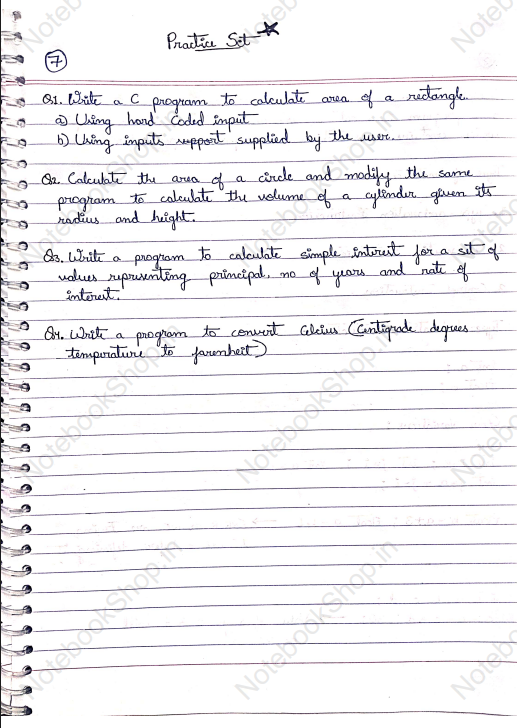 Practice Set
7
Q1. Write a C program to calculate area of a rectangle.
a) Using hard coded input
b) Using inputs support supplied by the user.
Q2. Calculate the area of a circle and modify the same
program to calculate the volume of a cylinder given its
radius and height.
Q3. Write a program to calculate simple interest for a set of
values representing principal, no of years and rate of
interest.
Q4. Write a program to convert Celcius (Centigrade degrees
temperature to farenheit)
NotebookShop.in
NotebookShop.in
NotebookShop.in
NotebookShop.in
NotebookShop.in